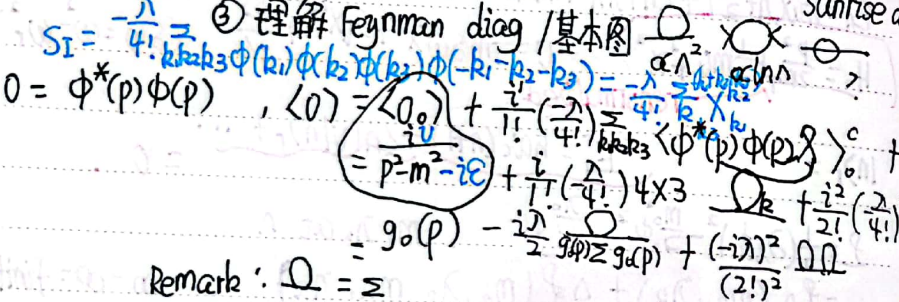 ③ 理解 Feynman diag / 基本图 ∝Λ² ∝lnΛ ?
S_I = -λ/4! Σ_{k₁k₂k₃} φ(k₁)φ(k₂)φ(k₃)φ(-k₁-k₂-k₃) = -λ/4! Σ
O = φ*(p)φ(p) , ⟨O⟩ = ⟨O₀⟩ + i/1! (-λ/4!) Σ_{k₁k₂k₃} ⟨φ*(p)φ(p) ⟩₀ᶜ +
= iV/(p²-m²-iε) + i/1! (-λ/4!) 4×3 + i²/2! (-λ/4!)
= g₀(p) - iλ/2 g₀(p)Σg₀(p) + (-iλ)²/(2!)²
Remark : = Σ